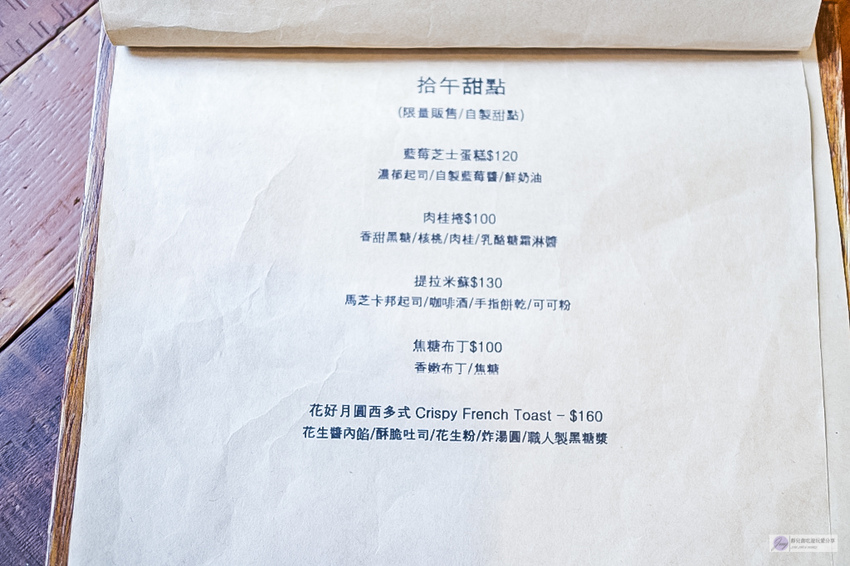 拾午甜點
(限量販售/自製甜點)
藍莓芝士蛋糕$120
濃郁起司/自製藍莓醬/鮮奶油
肉桂捲$100
香甜黑糖/核桃/肉桂/乳酪糖霜淋醬
提拉米蘇$130
馬芝卡邦起司/咖啡酒/手指餅乾/可可粉
焦糖布丁$100
香嫩布丁/焦糖
花好月圓西多式 Crispy French Toast – $160
花生醬內餡/酥脆吐司/花生粉/炸湯圓/職人製黑糖漿